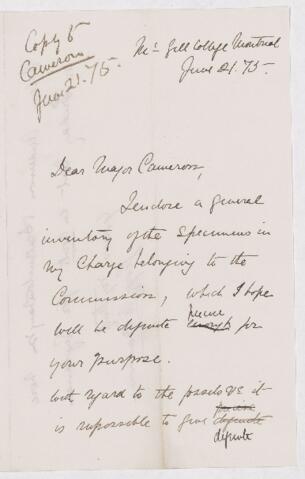 Copy to
Cameron
June 21. 75.
McGill College Montreal
June 21. 75.
Dear Major Cameron,
I enclose a general
inventory of the Specimens in
my Charge belonging to the
Commission, which I hope
will be definite enough for
your purpose.
With regard to the fossils &c it
is impossible to give definite
definite